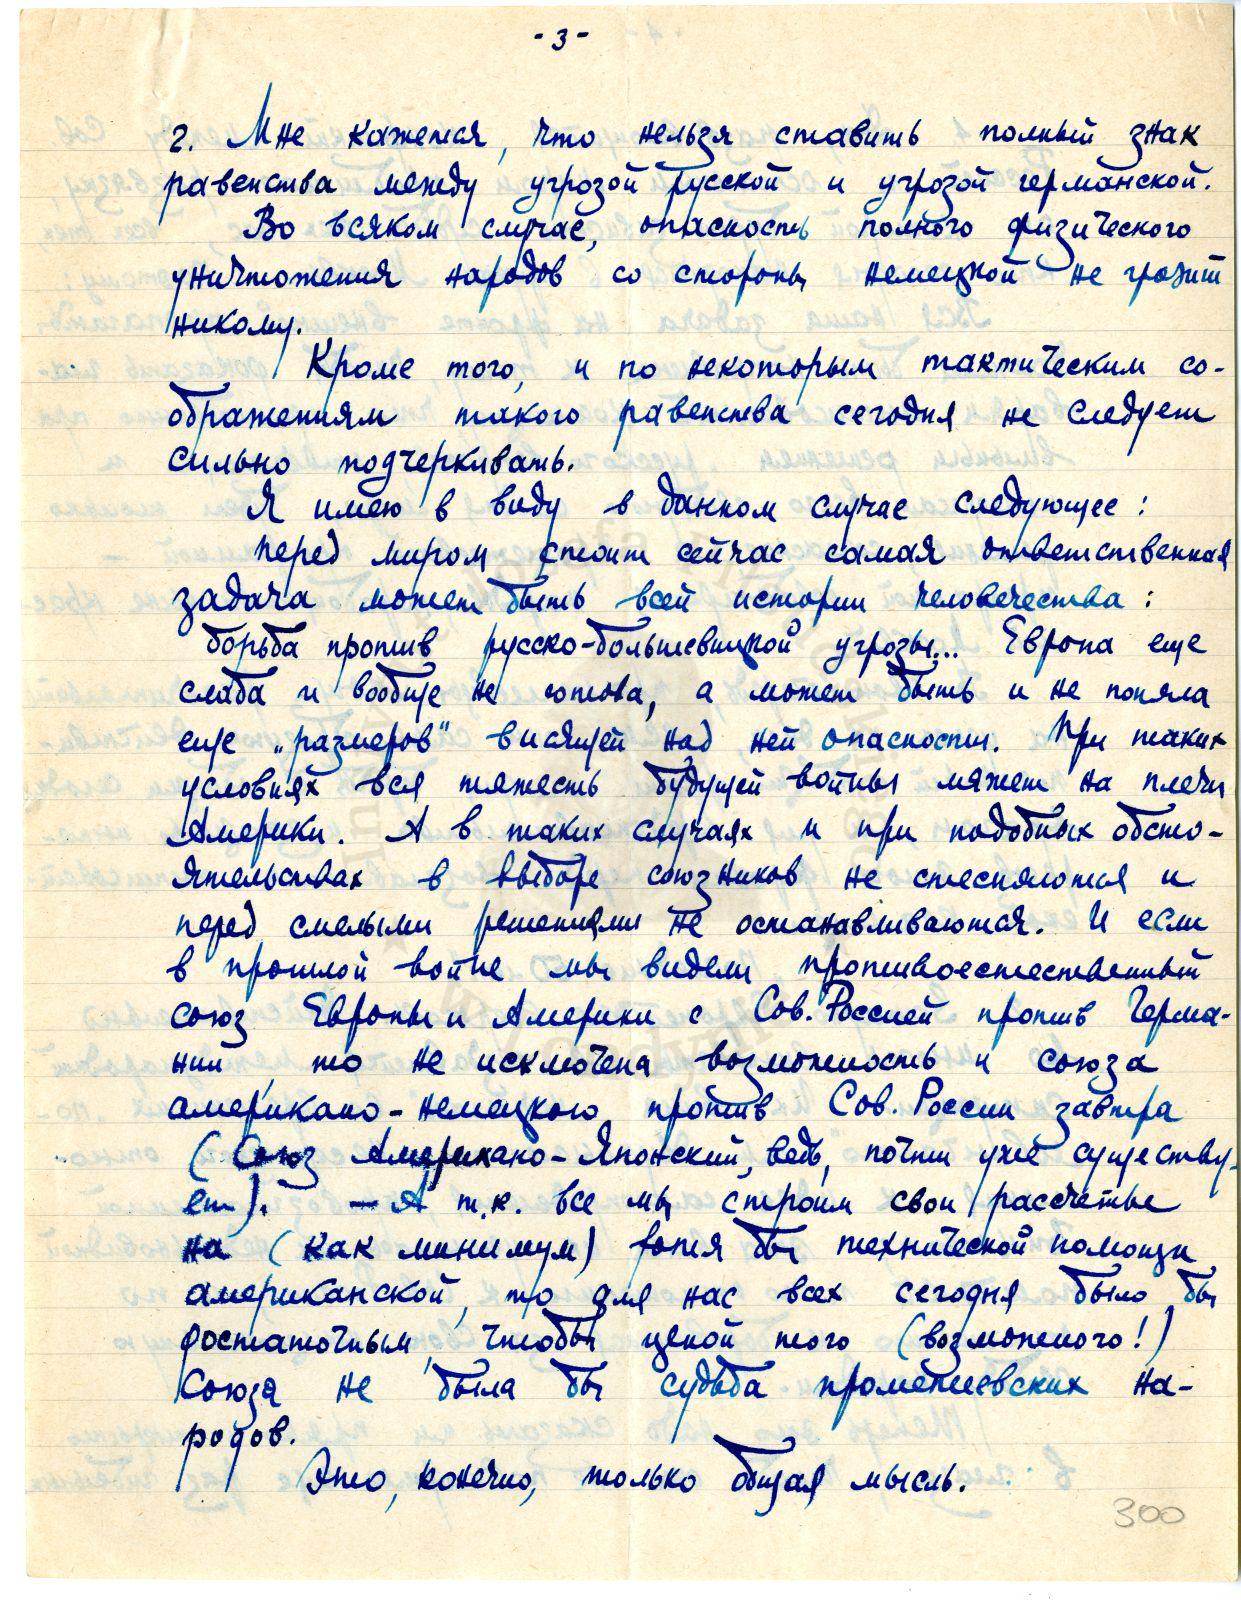 - 3 -
2. Мне кажется, что нельзя ставить полный знак
равенства между угрозой русской и угрозой германской.
Во всяком случае, опасность полного физического
уничтожения народов со стороны немецкой не грозит
никому.
Кроме того, и по некоторым тактическим со-
ображениям такого равенства сегодня не следует
сильно подчеркивать.
Я имею в виду в данном случае следующее:
перед миром стоит сейчас самая ответственная
задача может быть всей истории человечества:
борьба против русско-большевицкой угрозы... Европа еще
слаба и вообще не готова, а может быть и не поняла
еще „размеров" висящей над ней опасности. При таких
условиях вся тяжесть будущей войны ляжет на плечи
Америки. А в таких случаях и при подобных обсто-
ятельствах в выборе союзников не стесняются и
перед смелыми решениями не останавливаются. И если
в прошлой войне мы видели противоестественный
союз Европы и Америки с Сов. Россией против Герма-
нии то не исключена возможность и союза
американо-немецкого против Сов. России завтра
(Союз Американо-Японский, ведь, почти уже существу-
ет). — А т.к. все мы строим свои рассчеты
на (как минимум) хотя бы технической помощи
американской, то для нас всех сегодня было бы
достаточным, чтобы ценой того (возможного!)
Союза не была бы судьба прометеевских на-
родов.
Это, конечно, только общая мысль.
300